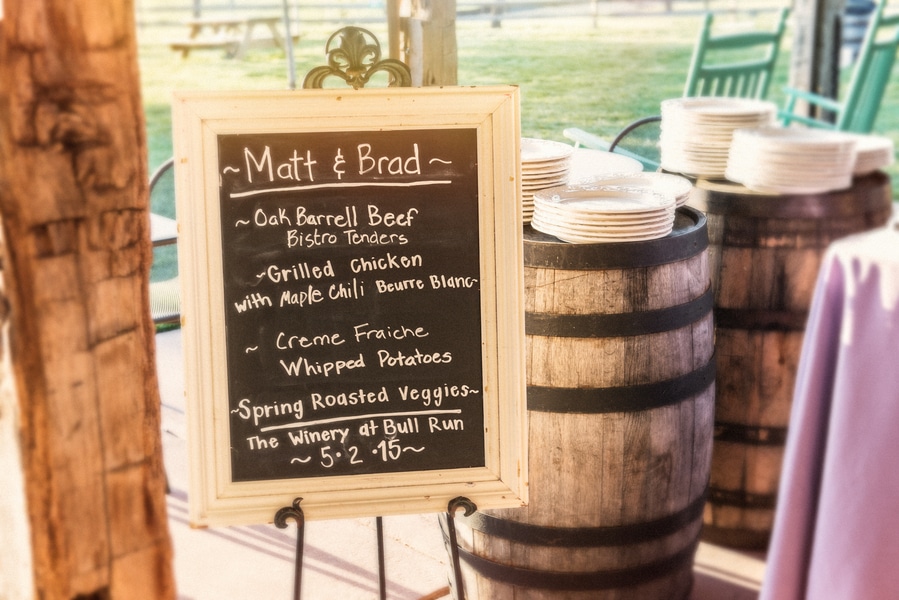 ~Matt & Brad~
~Oak Barrell Beef
Bistro Tenders
~Grilled Chicken
with Maple Chili Beurre Blanc~
~ Creme Fraiche
Whipped Potatoes
~Spring Roasted Veggies~
The Winery at Bull Run
~ 5·2·15~